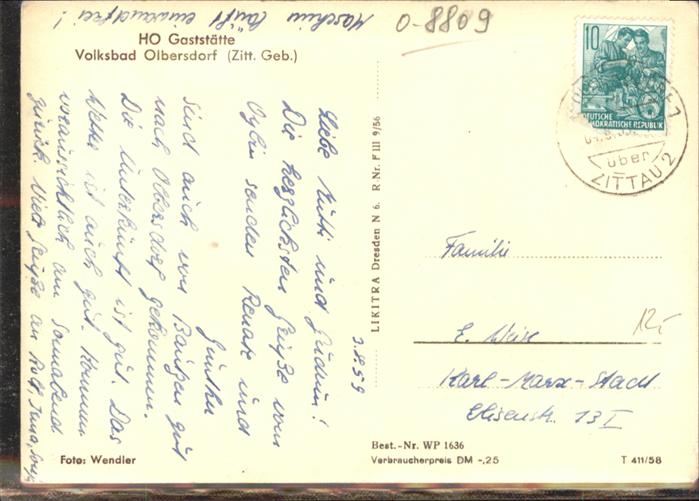 Maschin läuft einwandfrei!
O-8809
HO Gaststätte
Volksbad Olbersdorf (Zitt. Geb.)
10
DEUTSCHE
DEMOKRATISCHE REPUBLIK
über
ZITTAU 2
3.8.59
Liebe Mutti und Gudrun!
Die herzlichsten Grüße vom
Oybin senden Renate und
Günther
Sind auch von Bautzen gut
nach Olbersdorf gekommen.
Die Unterkunft ist gut. Das
Wetter ist auch gut. Kommen
voraussichtlich am Sonnabend
zurück. Viele Grüße an
LIKITRA Dresden N 6. R Nr. F III 9/56
Familie
E.
Karl-Marx-Stadt
Elisenstr. 13 I
12,-
Foto: Wendler
Best.-Nr. WP 1636
Verbraucherpreis DM -,25
T 411/58